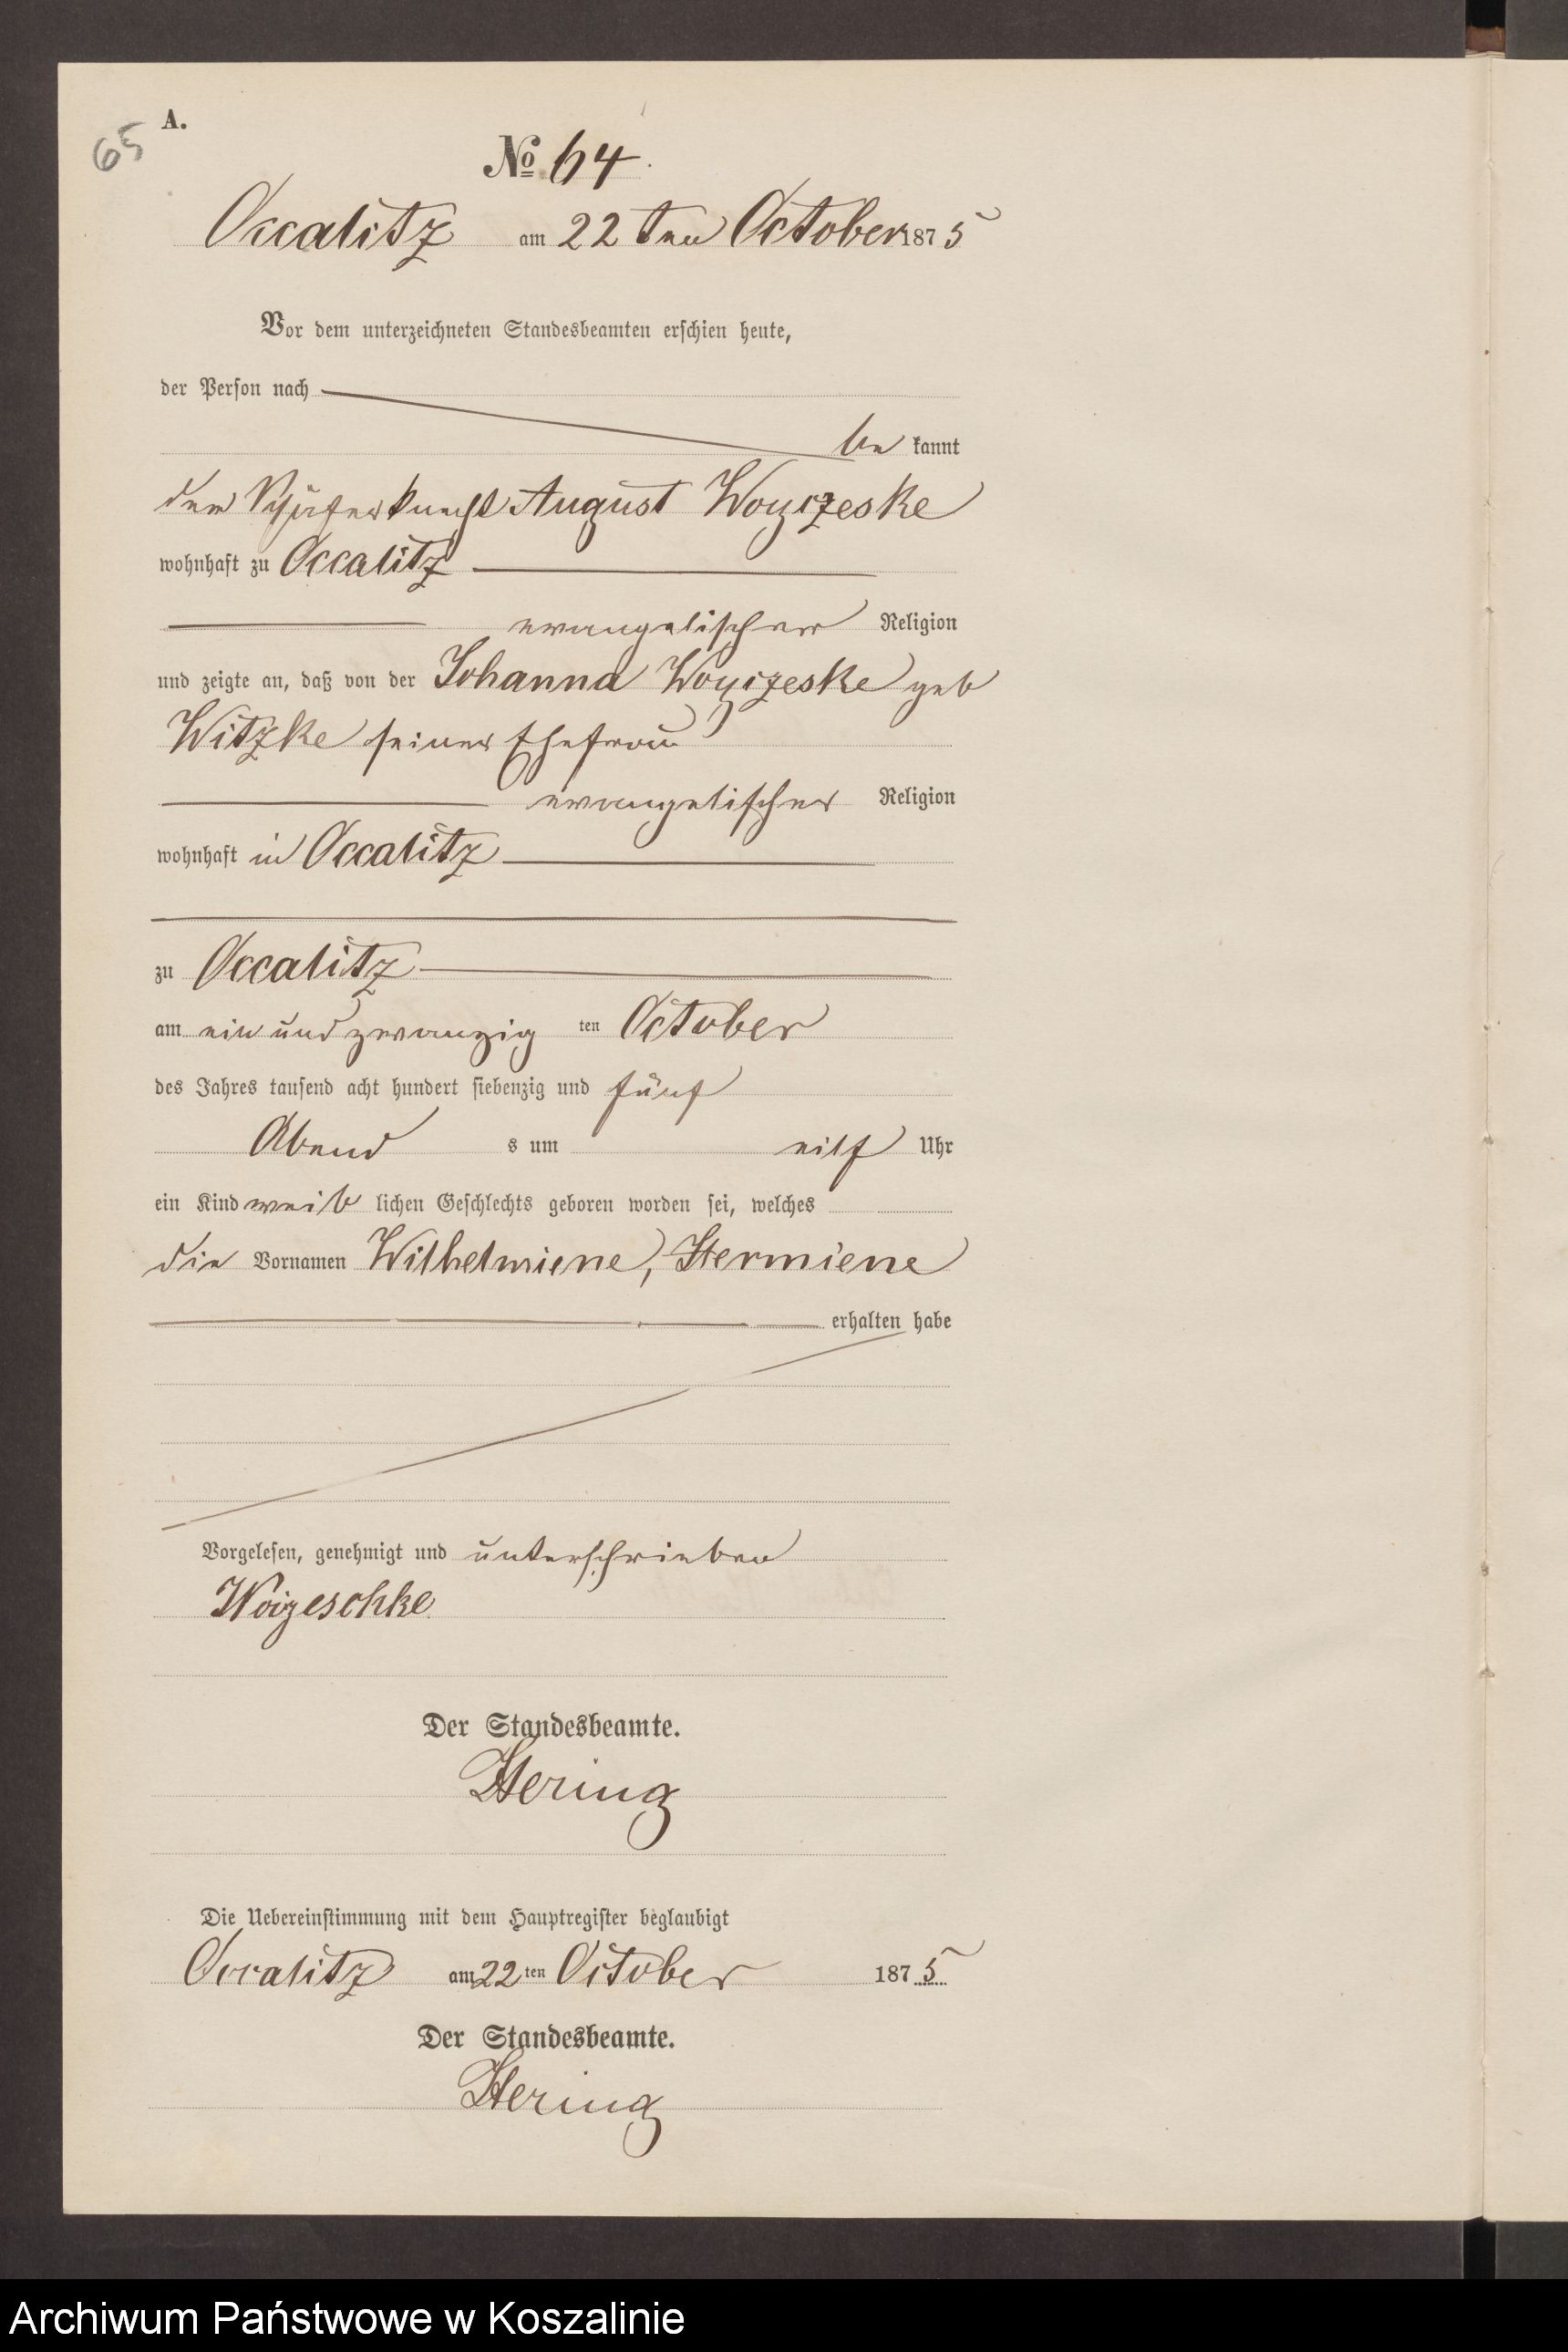 65
A.
№ 64.
Occalitz am 22 ten October 1875
Vor dem unterzeichneten Standesbeamten erschien heute,
der Person nach
be kannt
der Schäferknecht August Woyczeske
wohnhaft zu Occalitz
evangelischer Religion
und zeigte an, daß von der Johanna Woyczeske geb
Witzke seiner Ehefrau
evangelischer Religion
wohnhaft in Occalitz
zu Occalitz
am ein und zwanzig ten October
des Jahres tausend acht hundert siebenzig und fünf
Abend s um eilf Uhr
ein Kind weib lichen Geschlechts geboren worden sei, welches
die Vornamen Wilhelmiene, Hermiene
erhalten habe
Vorgelesen, genehmigt und unterschrieben
Woizeschke
Der Standesbeamte.
Hering
Die Uebereinstimmung mit dem Hauptregister beglaubigt
Occalitz am 22 ten October 1875.
Der Standesbeamte.
Hering
Archiwum Państwowe w Koszalinie